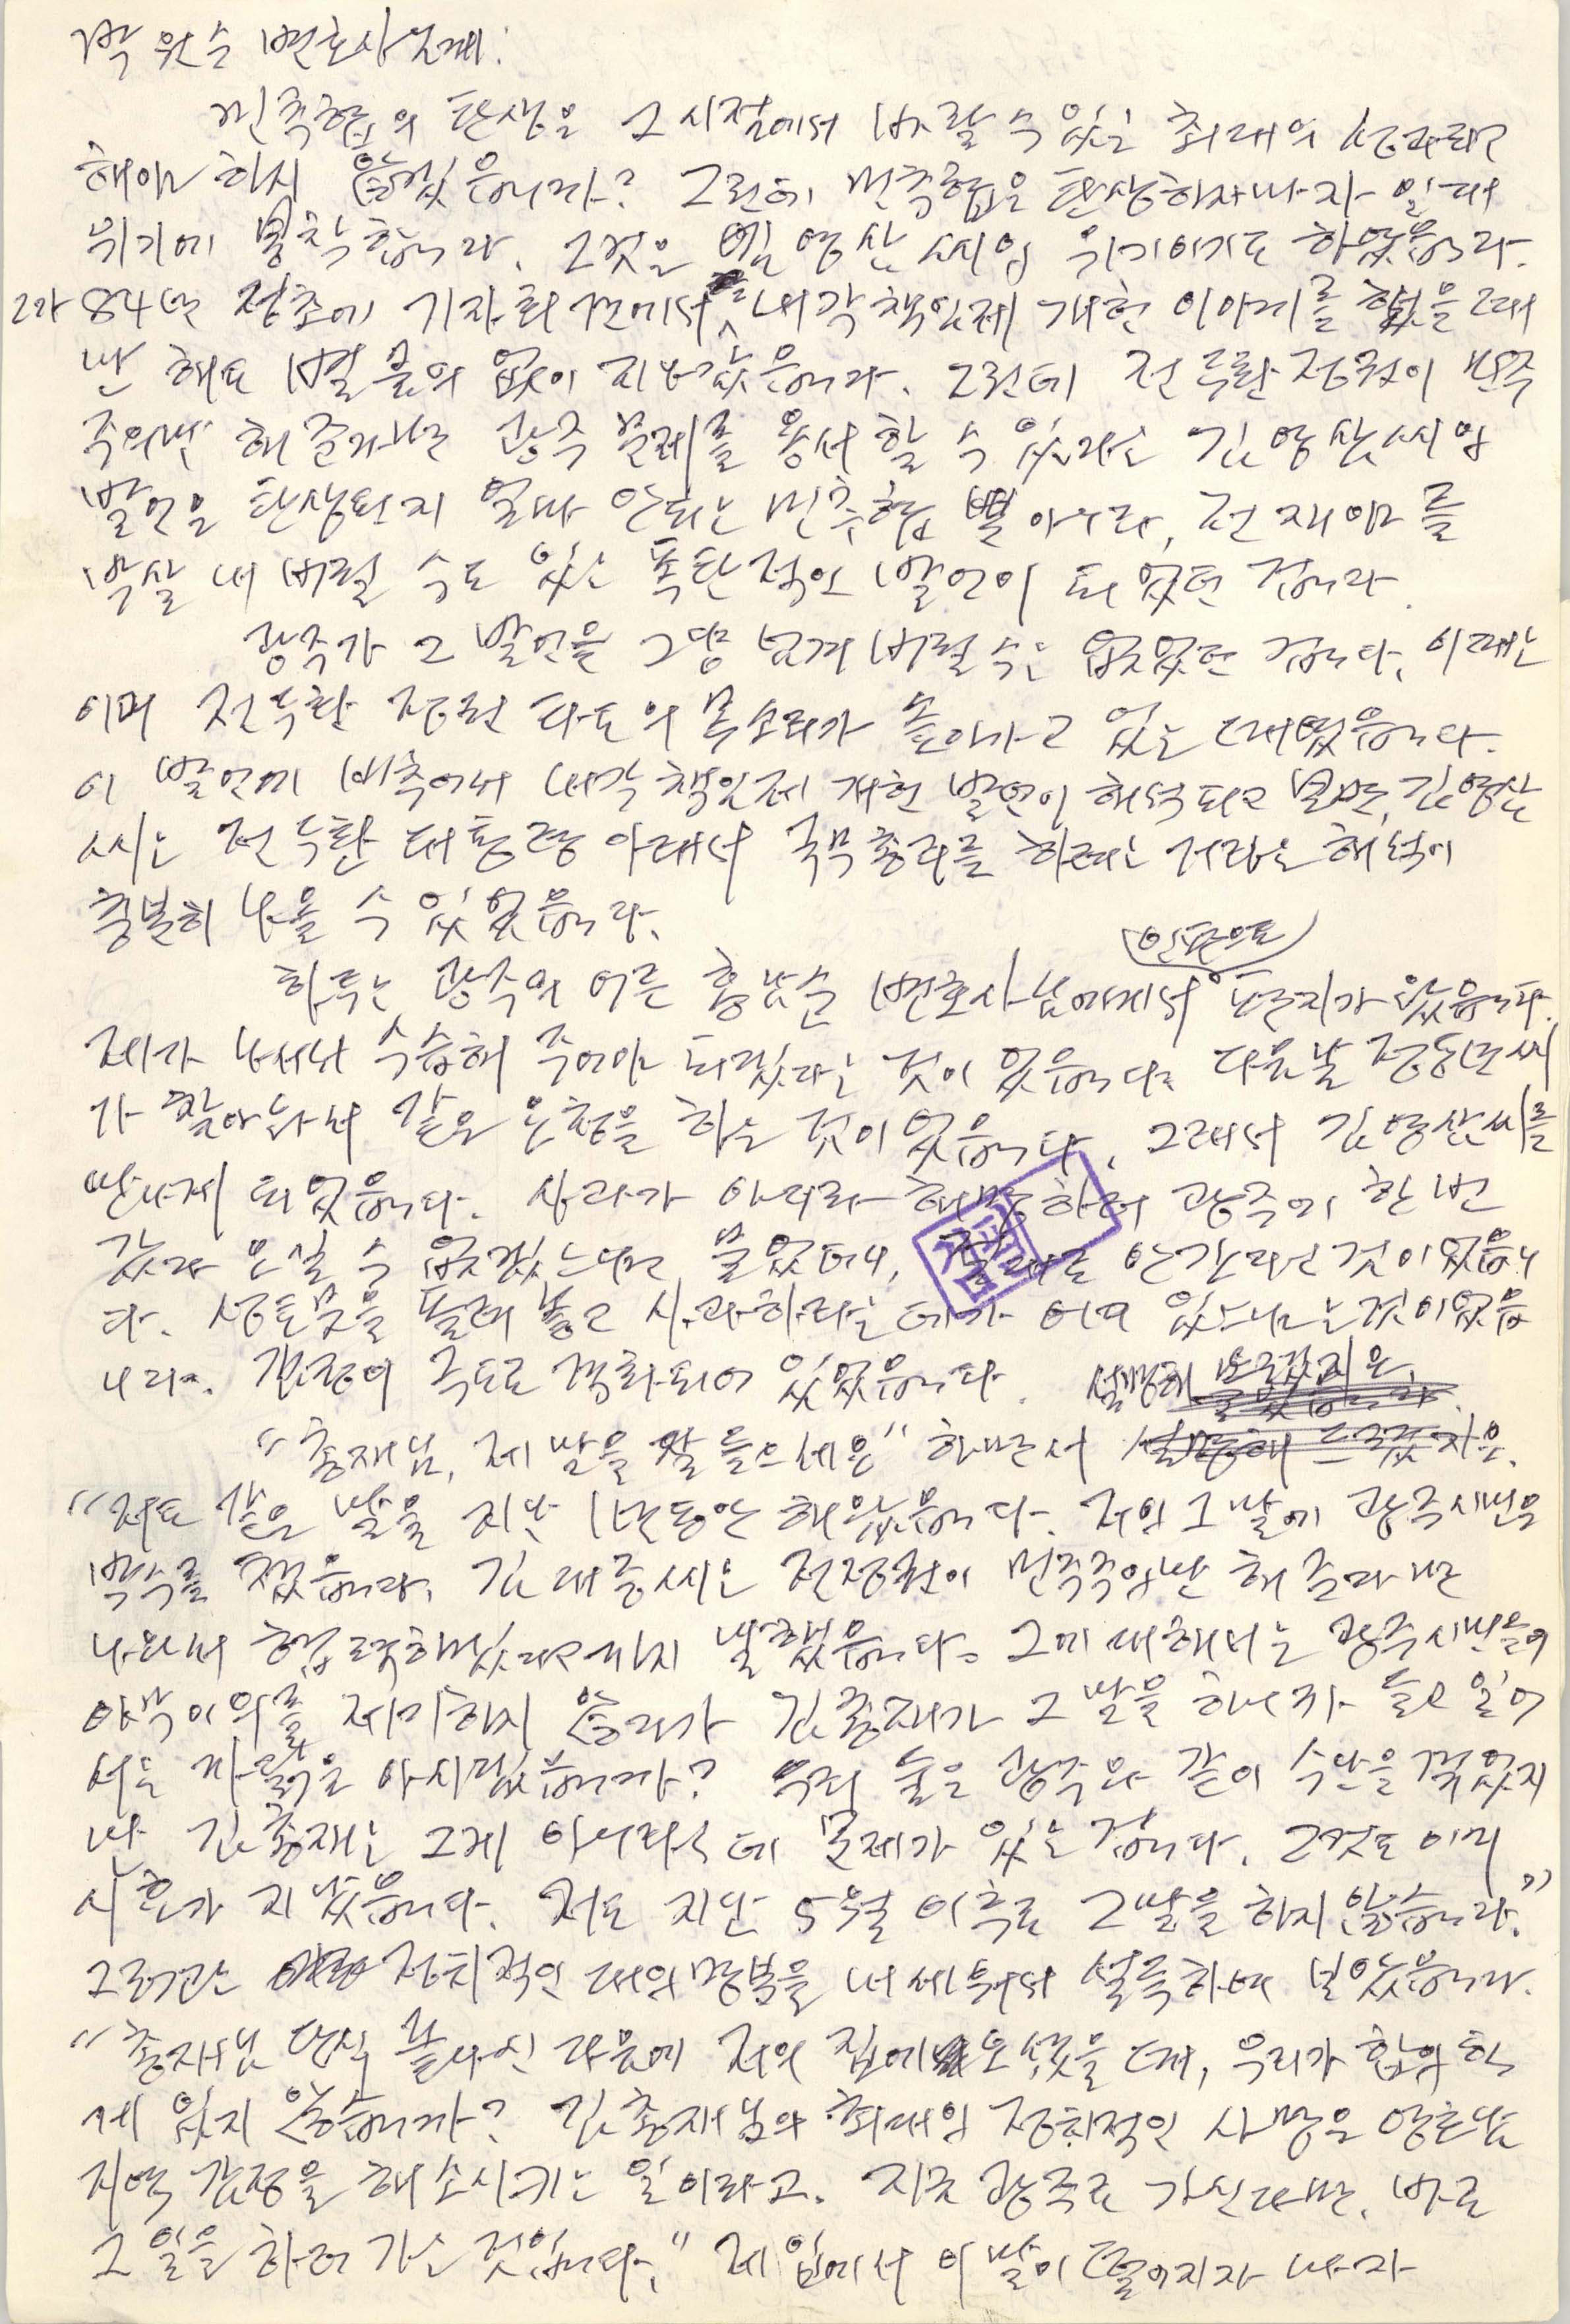 박원순 변호사님께:
민추협의 탄생은 그 시점에서 바랄 수 있는 최대의 성과라고
해야 하지 않겠읍니까? 그런데 민추협은 탄생하자마자 일대
위기에 봉착합니다. 그것은 김영삼씨의 위기이기도 하였읍니다.
그가 84년 정초에 기자회견에서 내각책임제 개헌 이야기를 했을 때
만 해도 별 물의 없이 지나갔읍니다. 그런데 전두환 정권이 민주
주의만 해준다면 광주 문제를 용서할 수 있다는 김영삼씨의
발언은 탄생된지 얼마 안되는 민추협 뿐 아니라, 전 재야를
박살 내 버릴 수도 있는 폭탄적인 발언이 되었던 겁니다.
광주가 그 발언을 그냥 넘겨 버릴 수는 없었던 겁니다. 이때는
이미 전두환 정권 타도의 목소리가 솟아나고 있는 때였읍니다.
이 발언에 비추어서 내각책임제 개헌 발언이 해석되고 보면, 김영삼
씨는 전두환 대통령 아래서 국무총리를 하려는 거라는 해석이
충분히 나올 수 있었읍니다.
(인편으로)
하루는 광주의 어른 홍남순 변호사님에게서 편지가 왔읍니다.
제가 나서서 수습해 주어야 되겠다는 것이었읍니다. 다음날 정동년씨
가 찾아와서 같은 요청을 하는 것이었읍니다. 그래서 김영삼씨를
만나게 되었읍니다. 사과가 아니라 해명하러 광주에 한번
갔다 오실 수 없겠느냐고 물었더니, 절대로 안간다는 것이었읍니
다. 생트집을 잡아 놓고 사과하라는 데가 어디 있느냐는 것이었읍
니다. 감정이 극도로 격화되어 있었읍니다.
"총재님, 제 말을 잘 들으세요" 하면서
"저도 같은 말을 지난 1년동안 해왔읍니다. 저의 그 말에 광주시민은
박수를 쳤읍니다. 김대중씨는 전정권이 민주주의만 해준다면
나와서 협력하겠다고까지 말했읍니다. 그에 대해서는 광주시민들이
아무 이의를 제기하지 않다가 김총재가 그 말을 하니까 들고 일어
서는 까닭을 아시겠읍니까? 우리 둘은 광주와 같이 수난을 겪었지
만 김총재는 그게 아니라는 데 문제가 있는 겁니다. 그것도 이미
시효가 지났읍니다. 저도 지난 5월 이후로 그말을 하지 않습니다."
그러고는 정치적인 대의명분을 내세워서 설득하여 보았읍니다.
"총재님 단식 끝나신 다음에 저의 집에 오셨을 때, 우리가 합의한
게 있지 않습니까? 김총재님의 최대의 정치적인 사명은 영호남
지역 감정을 해소시키는 일이라고. 지금 광주로 가신다면, 바로
그 일을 하러 가는 것입니다." 제 입에서 이 말이 떨어지자마자